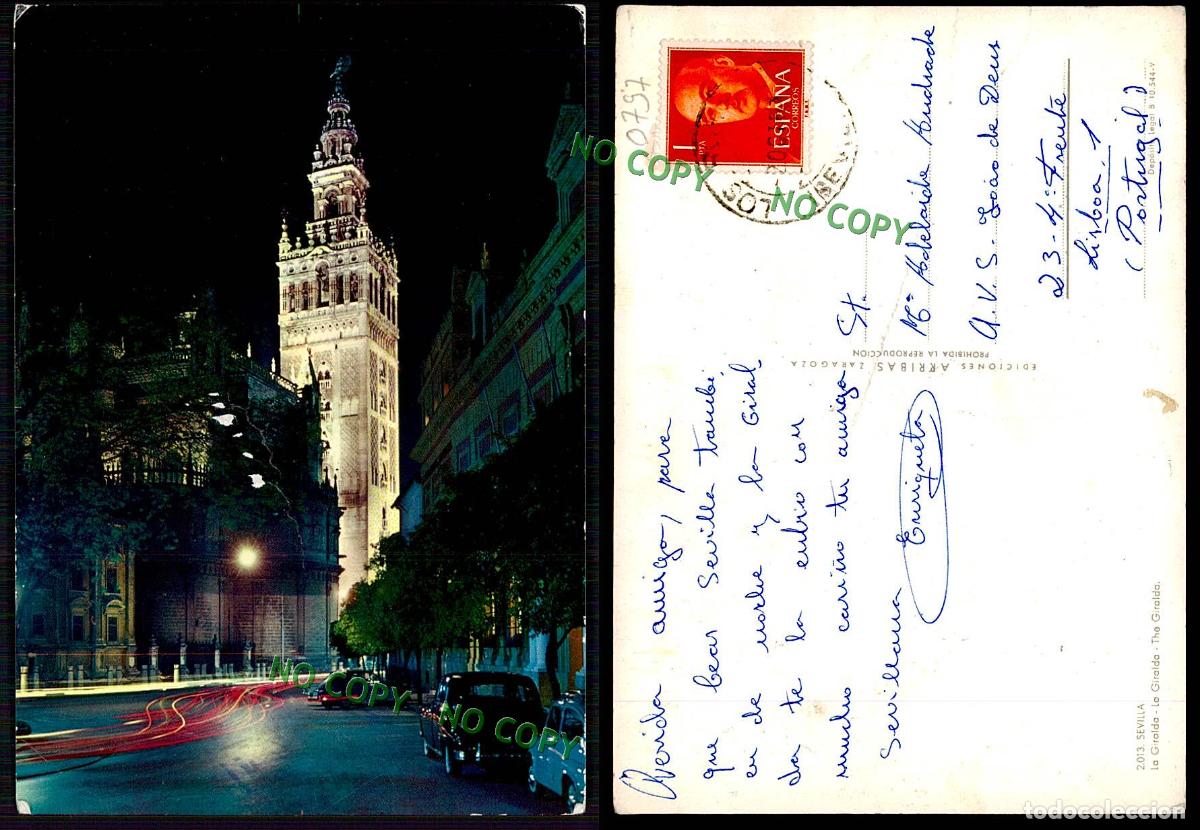 NO COPY
NO COPY
NO COPY
NO COPY
0797
1
PTA
ESPAÑA
CORREOS
Querida amiga, para
que beas Sevilla tambi
en de noche y la Giral
da te la enbio con
mucho cariño tu amiga
Sevillana
Enriqueta
Mª Adelaide Andrade
A.V. S. João de Deus
23-4º Frente
Lisboa. 1
(Portugal)
Depósito Legal B 10.544-V
EDICIONES ARRIBAS ZARAGOZA
PROHIBIDA LA REPRODUCCION
2.013. SEVILLA
La Giralda - La Giralda - The Giralda.
todocoleccion